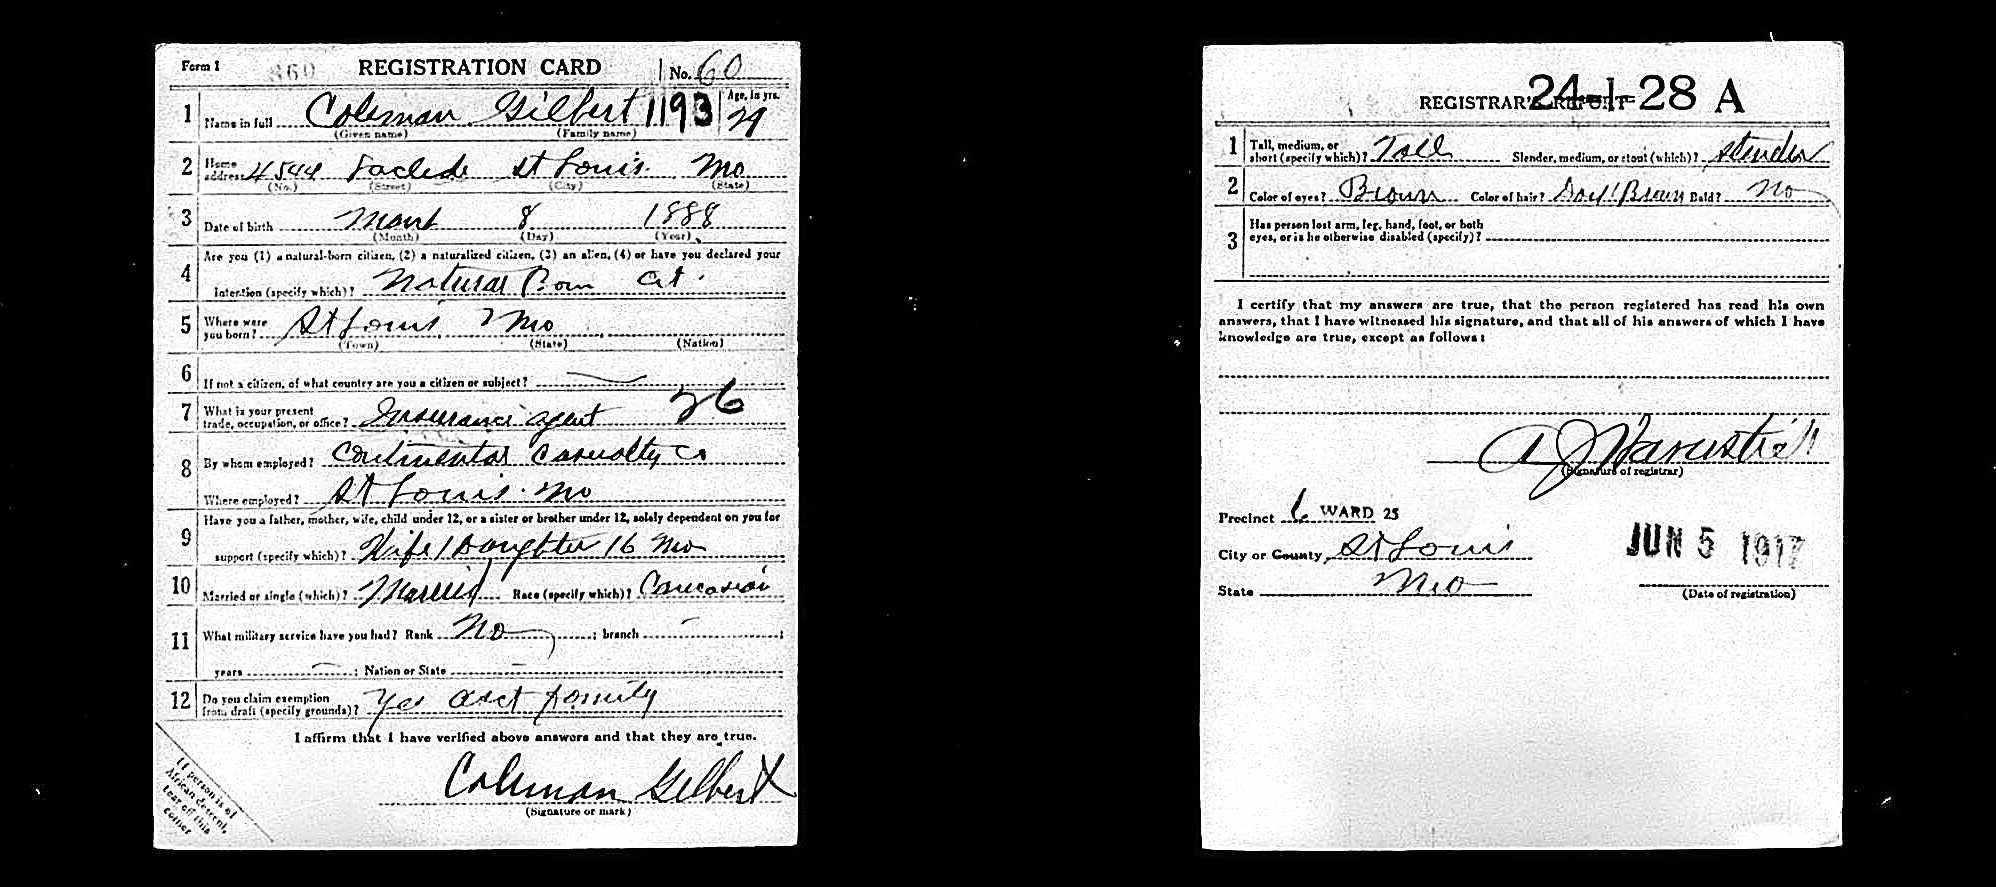 Form 1 860 REGISTRATION CARD No. 60
1 Name in full Coleman Gilbert 1193 Age, in yrs. 29
(Given name) (Family name)
2 Home address 4544 Laclede St Louis. Mo
(No.) (Street) (City) (State)
3 Date of birth 8 1888
(Month) (Day) (Year)
4 Are you (1) a natural-born citizen, (2) a naturalized citizen, (3) an alien, (4) or have you declared your
intention (specify which)? Natural Born Cit.
5 Where were you born? St Louis, Mo
(Town) (State) (Nation)
6 If not a citizen, of what country are you a citizen or subject?
7 What is your present trade, occupation, or office? Insurance agent 26
8 By whom employed? Continental Casualty Co
Where employed? St Louis. Mo
9 Have you a father, mother, wife, child under 12, or a sister or brother under 12, solely dependent on you for
support (specify which)? Wife 1 Daughter 16 Mo
10 Married or single (which)? Married Race (specify which)? Caucasian
11 What military service have you had? Rank No ; branch ;
years ; Nation or State
12 Do you claim exemption from draft (specify grounds)? Yes acct family
I affirm that I have verified above answers and that they are true.
Coleman Gilbert
(Signature or mark)
If person is of
African descent,
tear off this
corner
24-1-28 A
REGISTRAR'S REPORT
1 Tall, medium, or short (specify which)? Tall Slender, medium, or stout (which)? Slender
2 Color of eyes? Brown Color of hair? Brown Bald? No
3 Has person lost arm, leg, hand, foot, or both
eyes, or is he otherwise disabled (specify)?
I certify that my answers are true, that the person registered has read his own
answers, that I have witnessed his signature, and that all of his answers of which I have
knowledge are true, except as follows:
A J
(Signature of registrar)
Precinct 6 WARD 25
City or County St Louis JUN 5 1917
State Mo
(Date of registration)